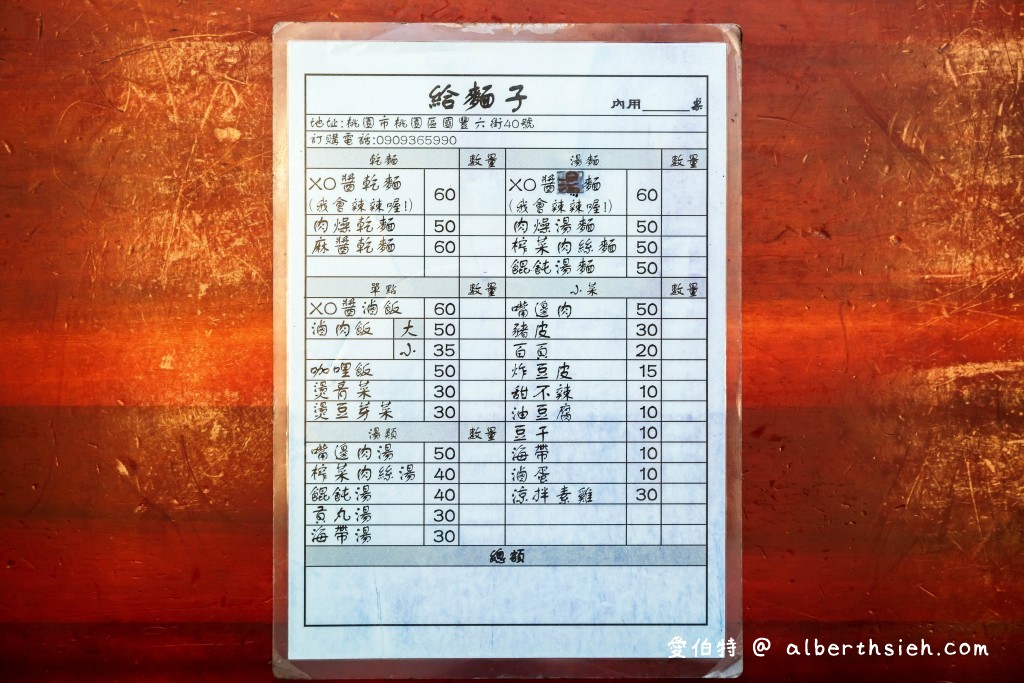 給麵子 內用_____桌
地址:桃園市桃園區國豐六街40號
訂購電話:0909365990
乾麵 數量 湯麵 數量
XO醬乾麵 60 XO醬湯麵 60
(我會辣辣喔!) (我會辣辣喔!)
肉燥乾麵 50 肉燥湯麵 50
麻醬乾麵 60 榨菜肉絲麵 50
餛飩湯麵 50
單點 數量 小菜 數量
XO醬滷飯 60 嘴邊肉 50
滷肉飯 大 50 豬皮 30
小 35 百頁 20
咖哩飯 50 炸豆皮 15
燙青菜 30 甜不辣 10
燙豆芽菜 30 油豆腐 10
湯類 數量 豆干 10
嘴邊肉湯 50 海帶 10
榨菜肉絲湯 40 滷蛋 10
餛飩湯 40 涼拌素雞 30
貢丸湯 30
海帶湯 30
總額
愛伯特 @ alberthsieh.com